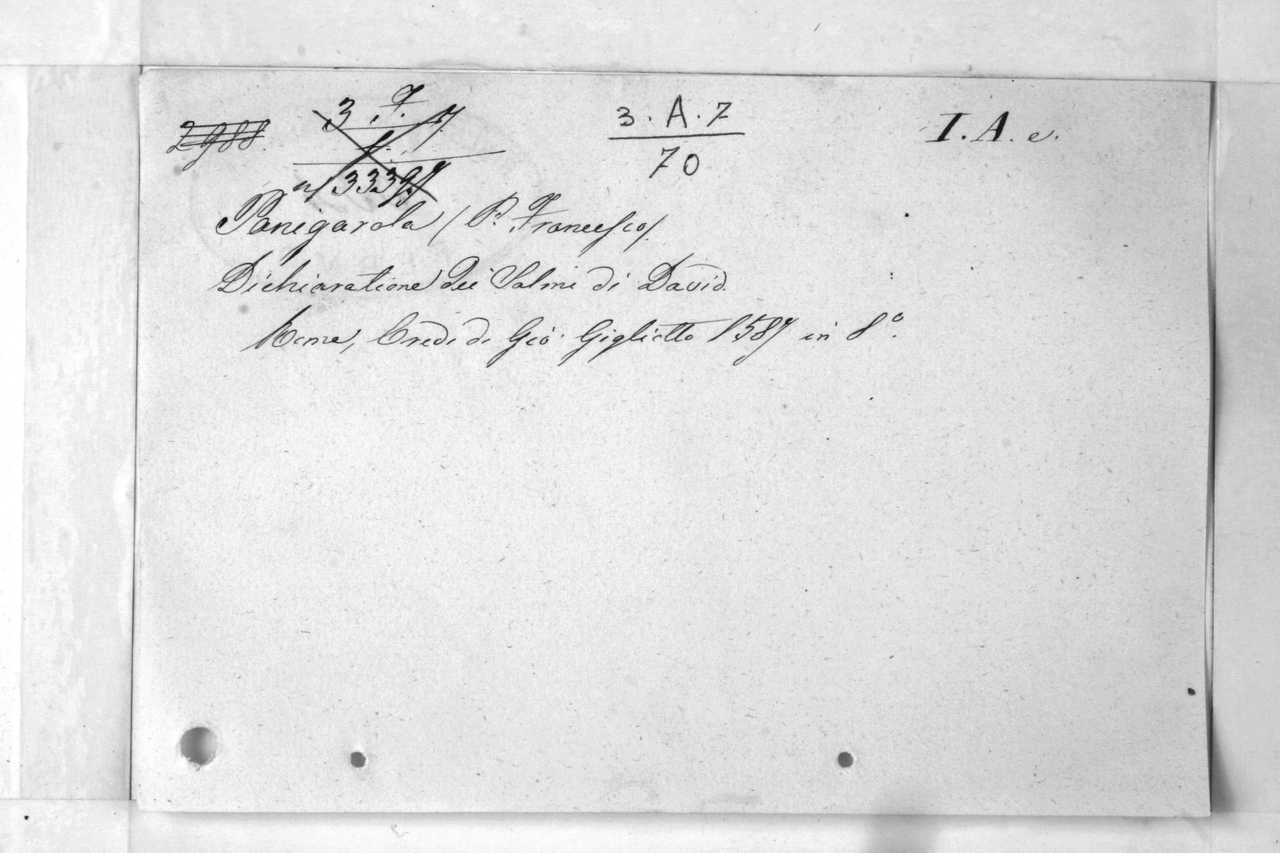 2988.
3. A. 7
70
I. A. e.
Panigarola (P. Francesco).
Dichiaratione dei Salmi di David.
Roma, Eredi di Gio. Gigliotto 1587 in 8.º